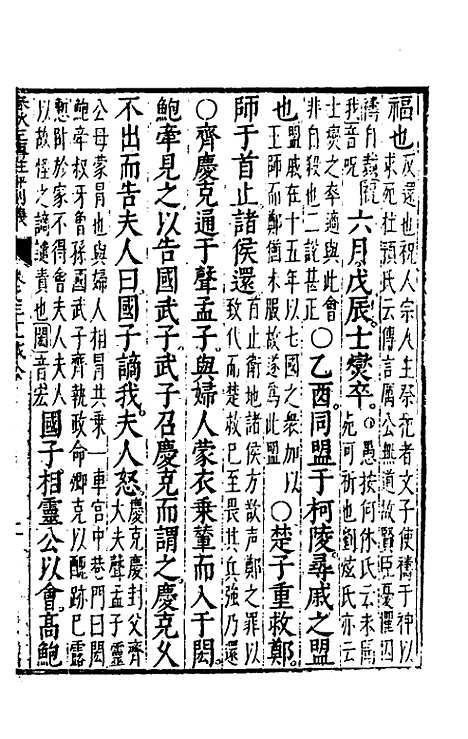 福也反還也祝人宗人主祭祀者文子使禱于神以求死杜預氏云傳言厲公無道故賢臣憂懼因禱自裁
我音呪六月戊辰士燮卒○愚按何休氏云未聞死可祈也劉炫氏亦云士燮之卒適與此會非自殺也二說甚正○乙酉同盟于柯陵尋戚之盟
也盟戚在十五年以七國之衆加以王師而鄭猶未服故遂爲此盟○楚子重救鄭
師于首止諸侯還首止衛地諸侯方欲声鄭之罪以致伐而楚救已至畏其兵強乃還
○齊慶克通于聲孟子與婦人蒙衣乘輦而入于閎
鮑牽見之以告國武子武子召慶克而謂之慶克久
不出而告夫人曰國子謫我夫人怒慶克慶封父齊大夫聲孟子靈公母蒙冒也與婦人相冒共乘一車宮中巷門曰閎
鮑牽叔牙曾孫武子齊執政命卿克以醜跡已露慙卧於家不得會夫人夫人以故怪之謫譴責也閎音宏國子相靈公以會高鮑